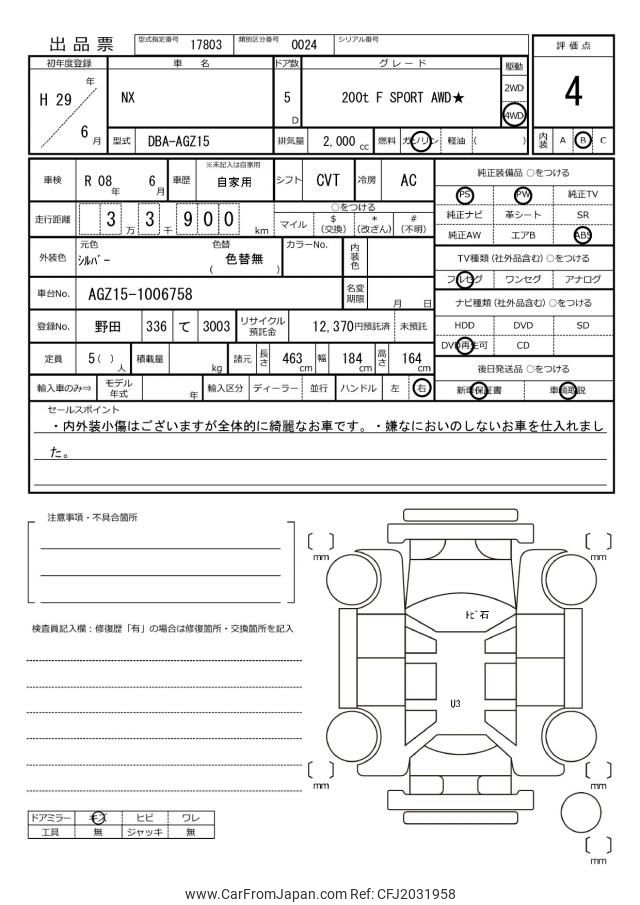 出品票 型式指定番号 17803 類別区分番号 0024 シリアル番号
評価点
4
初年度登録 車名 ドア数 グレード 駆動
H 29 年 6 月 NX 5 D 200t F SPORT AWD★ 2WD 4WD
型式 DBA-AGZ15 排気量 2,000 cc 燃料 ガソリン 軽油 ( ) 内装 A B C
車検 R 08 年 6 月 車歴 ※未記入は自家用 自家用 シフト CVT 冷房 AC
純正装備品 ○をつける
PS PW 純正TV
純正ナビ 革シート SR
純正AW エアB ABS
走行距離 3 万 3 千 9 0 0 km
○をつける
マイル $ (交換) * (改ざん) # (不明)
外装色 元色 シルバー 色替 ( 色替無 ) カラーNo. 内装色
TV種類 (社外品含む) ○をつける
フルセグ ワンセグ アナログ
車台No. AGZ15-1006758 名変期限 月 日
ナビ種類 (社外品含む) ○をつける
登録No. 野田 336 て 3003 リサイクル預託金 12,370円預託済 未預託
HDD DVD SD
DVD再生可 CD
定員 5 ( ) 人 積載量 kg 諸元 長さ 463 cm 幅 184 cm 高さ 164 cm
後日発送品 ○をつける
輸入車のみ⇒ モデル年式 年 輸入区分 ディーラー 並行 ハンドル 左 右
新車保証書 車輌取説
セールスポイント
・内外装小傷はございますが全体的に綺麗なお車です。・嫌なにおいのしないお車を仕入れまし
た。
注意事項・不具合箇所
検査員記入欄：修復歴「有」の場合は修復箇所・交換箇所を記入
mm
mm
トビ石
U3
mm
mm
mm
ドアミラー キズ ヒビ ワレ
工具 無 ジャッキ 無
www.CarFromJapan.com Ref: CFJ2031958